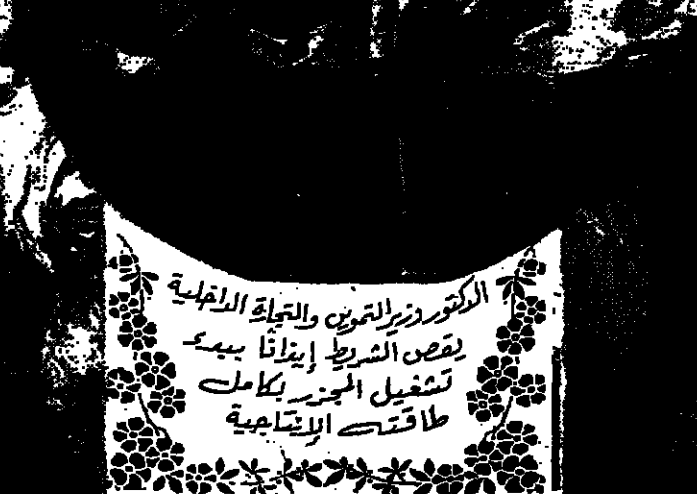 الدكتور وزير التموين والتجارة الداخلية
يقص الشريط إيذانًا ببدء
تشغيل المجزر بكامل
طاقته الإنتاجية